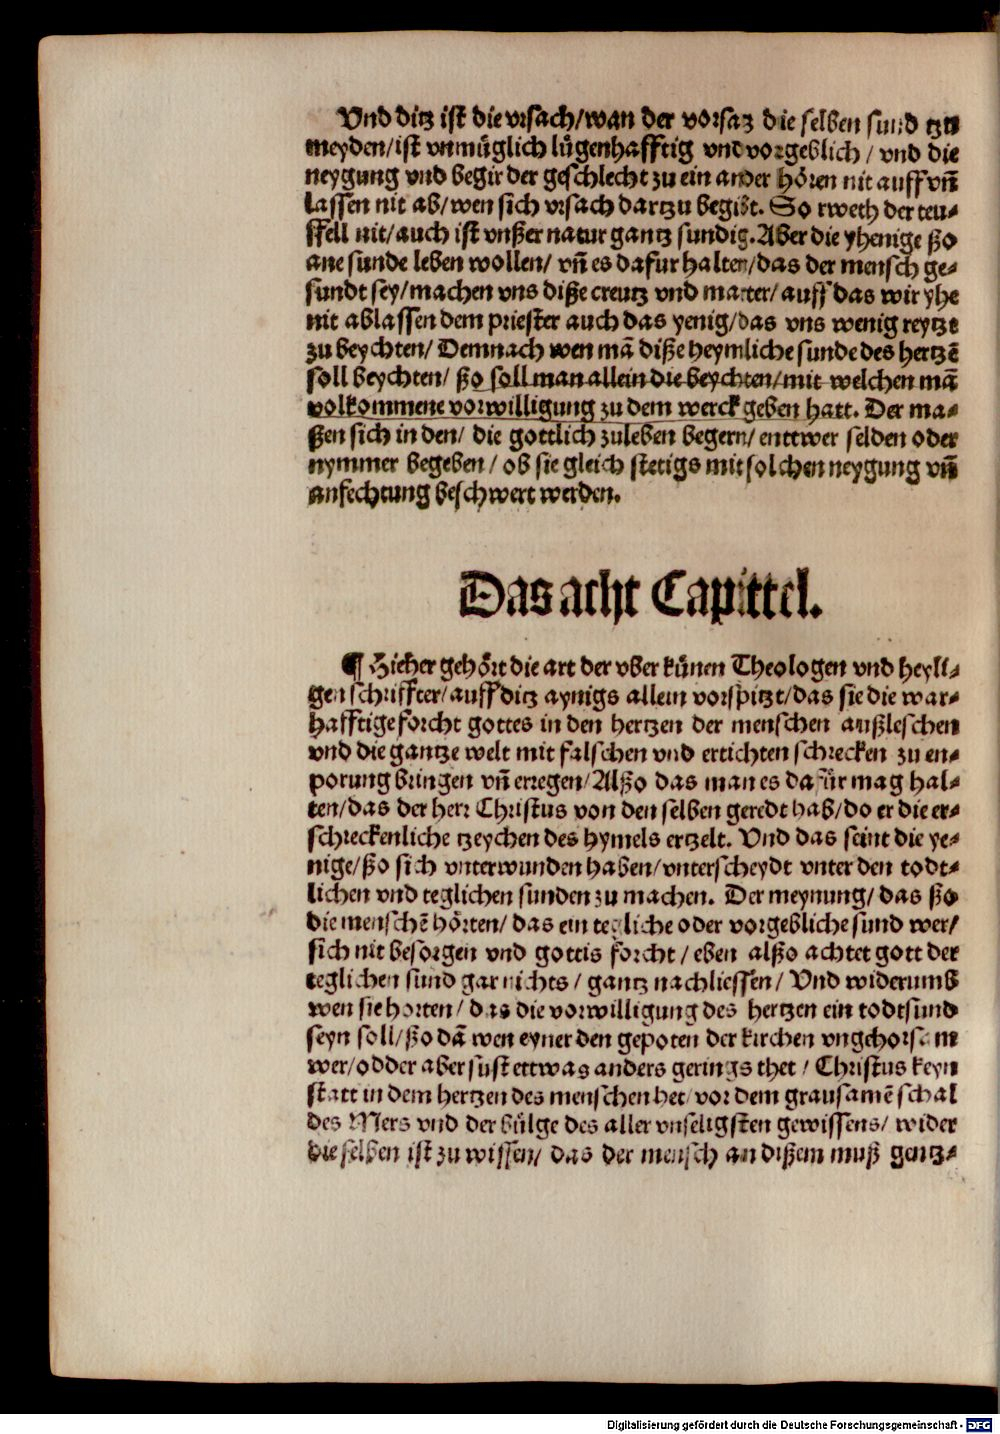 Vnd ditz ist die vrsach/wan der vorsaz die selben sund tzu
meyden/ist vnmüglich lügenhafftig vnd vorgeblich / vnd die
neygung vnd begir der geschlecht zu ein ander hören nit auff vñ
lassen nit ab/wen sich vrsach dartzu begibt. So rweth der teu-
ffell nit/auch ist vnßer natur gantz sundig. Aber die yhenige ßo
ane sunde leben wollen/ vñ es dafur halten/das der mensch ge-
sundt sey/machen vns diße creutz vnd marter/auff das wir yhe
nit ablassen dem priester auch das yenig/das vns wenig reytzt
zu beychten/ Demnach wen mā diße heymliche sunde des hertzē
soll beychten/ ßo soll man allein die beychten/mit welchen mā
volkommene vorwilligung zu dem werck geben hatt. Der ma-
ßen sich in den/ die gottlich zuleben begern/enttwer selden oder
nymmer begeben / ob sie gleich stetigs mit solchen neygung vñ
anfechtung beschwert werden.
Das acht Capittel.
¶ Hieher gehört die art der vber künen Theologen vnd heyli-
gen schriffter/auff ditz aynigs allein vorspitzt/das sie die war-
hafftige forcht gottes in den hertzen der menschen außleschen
vnd die gantze welt mit falschen vnd ertichten schrecken zu en-
porung bringen vñ erregen/Alßo das man es dafür mag hal-
ten/das der herr Christus von den selben geredt hab/do er die er-
schreckenliche tzeychen des hymels ertzelt. Vnd das seint die ye-
nige/ßo sich vnterwunden haben/vnterscheydt vnter den todt-
lichen vnd teglichen sunden zu machen. Der meynung/das ßo
die menschē hörten/ das ein tegliche oder vorgebliche sund wer/
sich nit besorgen vnd gottis forcht / eben alßo achtet gott der
teglichen sund gar nichts / gantz nachliessen / Vnd widerumb
wen sie horten/ das die vorwilligung des hertzen ein todtsund
seyn soll/ßo dā wen eyner den gepoten der kirchen vngehorsam
wer/odder aber sust ettwas anders gerings thet / Christus keyn
statt in dem hertzen des menschen het/vor dem grausamē schal
des Mers vnd der bülge des aller vnseligsten gewissens/ wider
die selben ist zu wissen/ das der mensch an dißem muß gentz-
Digitalisierung gefördert durch die Deutsche Forschungsgemeinschaft - DFG